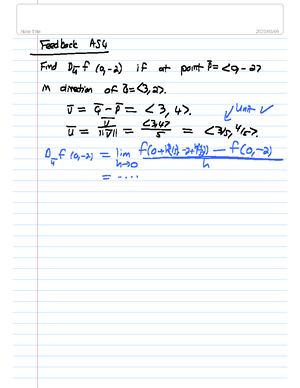 Note Title
2021/03/09
Feedback AS4
Find D_ū f (0,-2) if at point P̄ = <0,-2>
in direction of Q̄ = <3,2>.
v̄ = Q̄ - P̄ = <3, 4>. Unit ✓
ū = v̄/||v̄|| = <3,4>/5 = <3/5, 4/5>.
D_ū f (0,-2) = lim h→0 f(0+h(3/5), -2+h(4/5)) - f(0,-2) / h
= .....